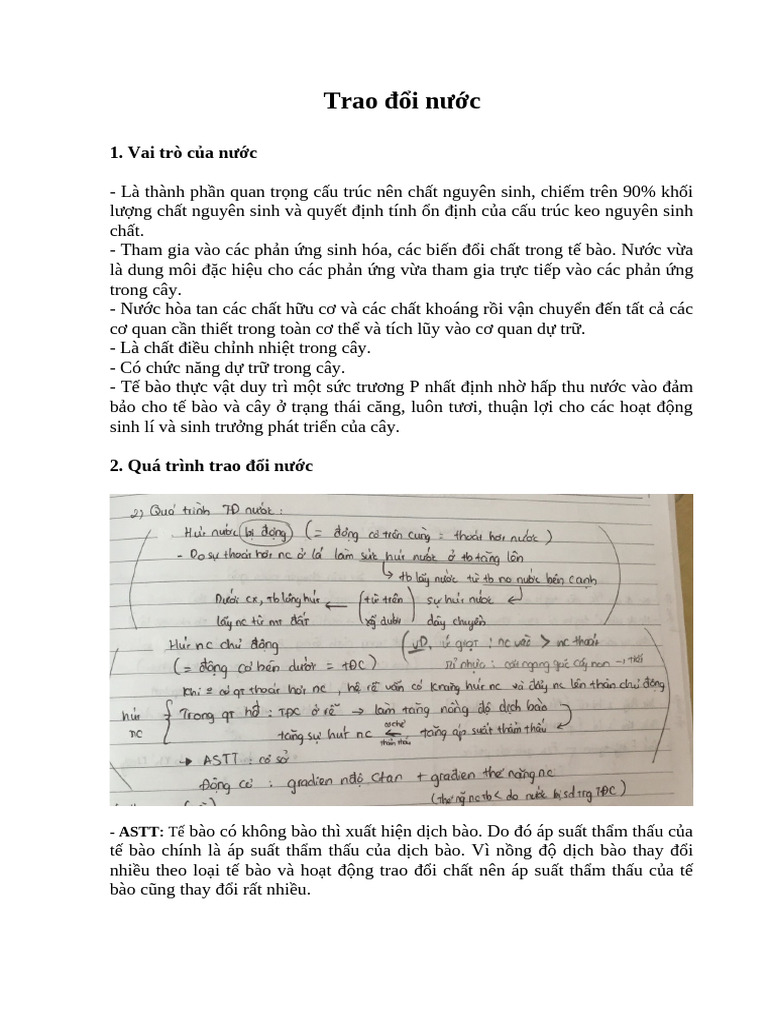 Trao đổi nước
1. Vai trò của nước
- Là thành phần quan trọng cấu trúc nên chất nguyên sinh, chiếm trên 90% khối
lượng chất nguyên sinh và quyết định tính ổn định của cấu trúc keo nguyên sinh
chất.
- Tham gia vào các phản ứng sinh hóa, các biến đổi chất trong tế bào. Nước vừa
là dung môi đặc hiệu cho các phản ứng vừa tham gia trực tiếp vào các phản ứng
trong cây.
- Nước hòa tan các chất hữu cơ và các chất khoáng rồi vận chuyển đến tất cả các
cơ quan cần thiết trong toàn cơ thể và tích lũy vào cơ quan dự trữ.
- Là chất điều chỉnh nhiệt trong cây.
- Có chức năng dự trữ trong cây.
- Tế bào thực vật duy trì một sức trương P nhất định nhờ hấp thu nước vào đảm
bảo cho tế bào và cây ở trạng thái căng, luôn tươi, thuận lợi cho các hoạt động
sinh lí và sinh trưởng phát triển của cây.
2. Quá trình trao đổi nước
2) Quá trình TĐ nước :
Hút nước bị động (= động cơ trên cùng = thoát hơi nước)
- Do sự thoát hơi nc ở lá làm sức hút nước ở tb tăng lên
→ tb lấy nước từ tb no nước bên cạnh
Dưới cx, tb lông hút ← (từ trên sự hút nước
lấy nc từ mt đất xg dưới) dây chuyền
Hút nc chủ động (VD, ứ giọt : nc vào > nc thoát
(= động cơ bên dưới = TĐC) Rỉ nhựa : cắt ngang gốc cây non
Khi có qt thoát hơi nc, hệ rễ vẫn có k năng hút nc và đẩy nc lên thân chủ động
hút nc { Trong qt hh : TĐC ở rễ → làm tăng nồng độ dịch bào
tăng sự hút nc ← cơ chế thẩm thấu tăng áp suất thẩm thấu
→ ASTT : cơ sở
Động cơ : gradien nđộ ctan + gradien thế năng nc
(Thế năg nc tb < do nước bị sd trg TĐC)
- ASTT: Tế bào có không bào thì xuất hiện dịch bào. Do đó áp suất thẩm thấu của
tế bào chính là áp suất thẩm thấu của dịch bào. Vì nồng độ dịch bào thay đổi
nhiều theo loại tế bào và hoạt động trao đổi chất nên áp suất thẩm thấu của tế
bào cũng thay đổi rất nhiều.